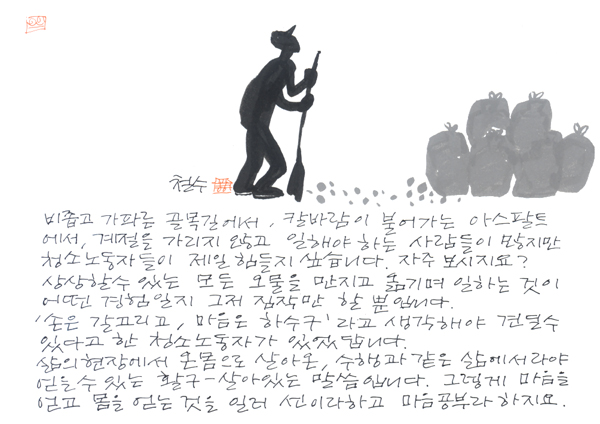 철수
비좁고 가파른 골목길에서, 칼바람이 불어가는 아스팔트
에서, 계절을 가리지 않고 일해야 하는 사람들이 많지만
청소노동자들이 제일 힘들지 싶습니다. 자주 보시지요?
상상할수 있는 모든 오물을 만지고 옮기며 일하는 것이
어떤 경험일지 그저 짐작만 할 뿐입니다.
'손은 갈고리고, 마음은 하수구' 라고 생각해야 견딜수
있다고 한 청소노동자가 있었답니다.
삶의현장에서 온몸으로 살아온, 수행과 같은 삶에서라야
얻을수 있는 활구-살아있는 말씀입니다. 그렇게 마음을
얻고 몸을 얻는것을 일러 선이라하고 마음공부라 하지요.